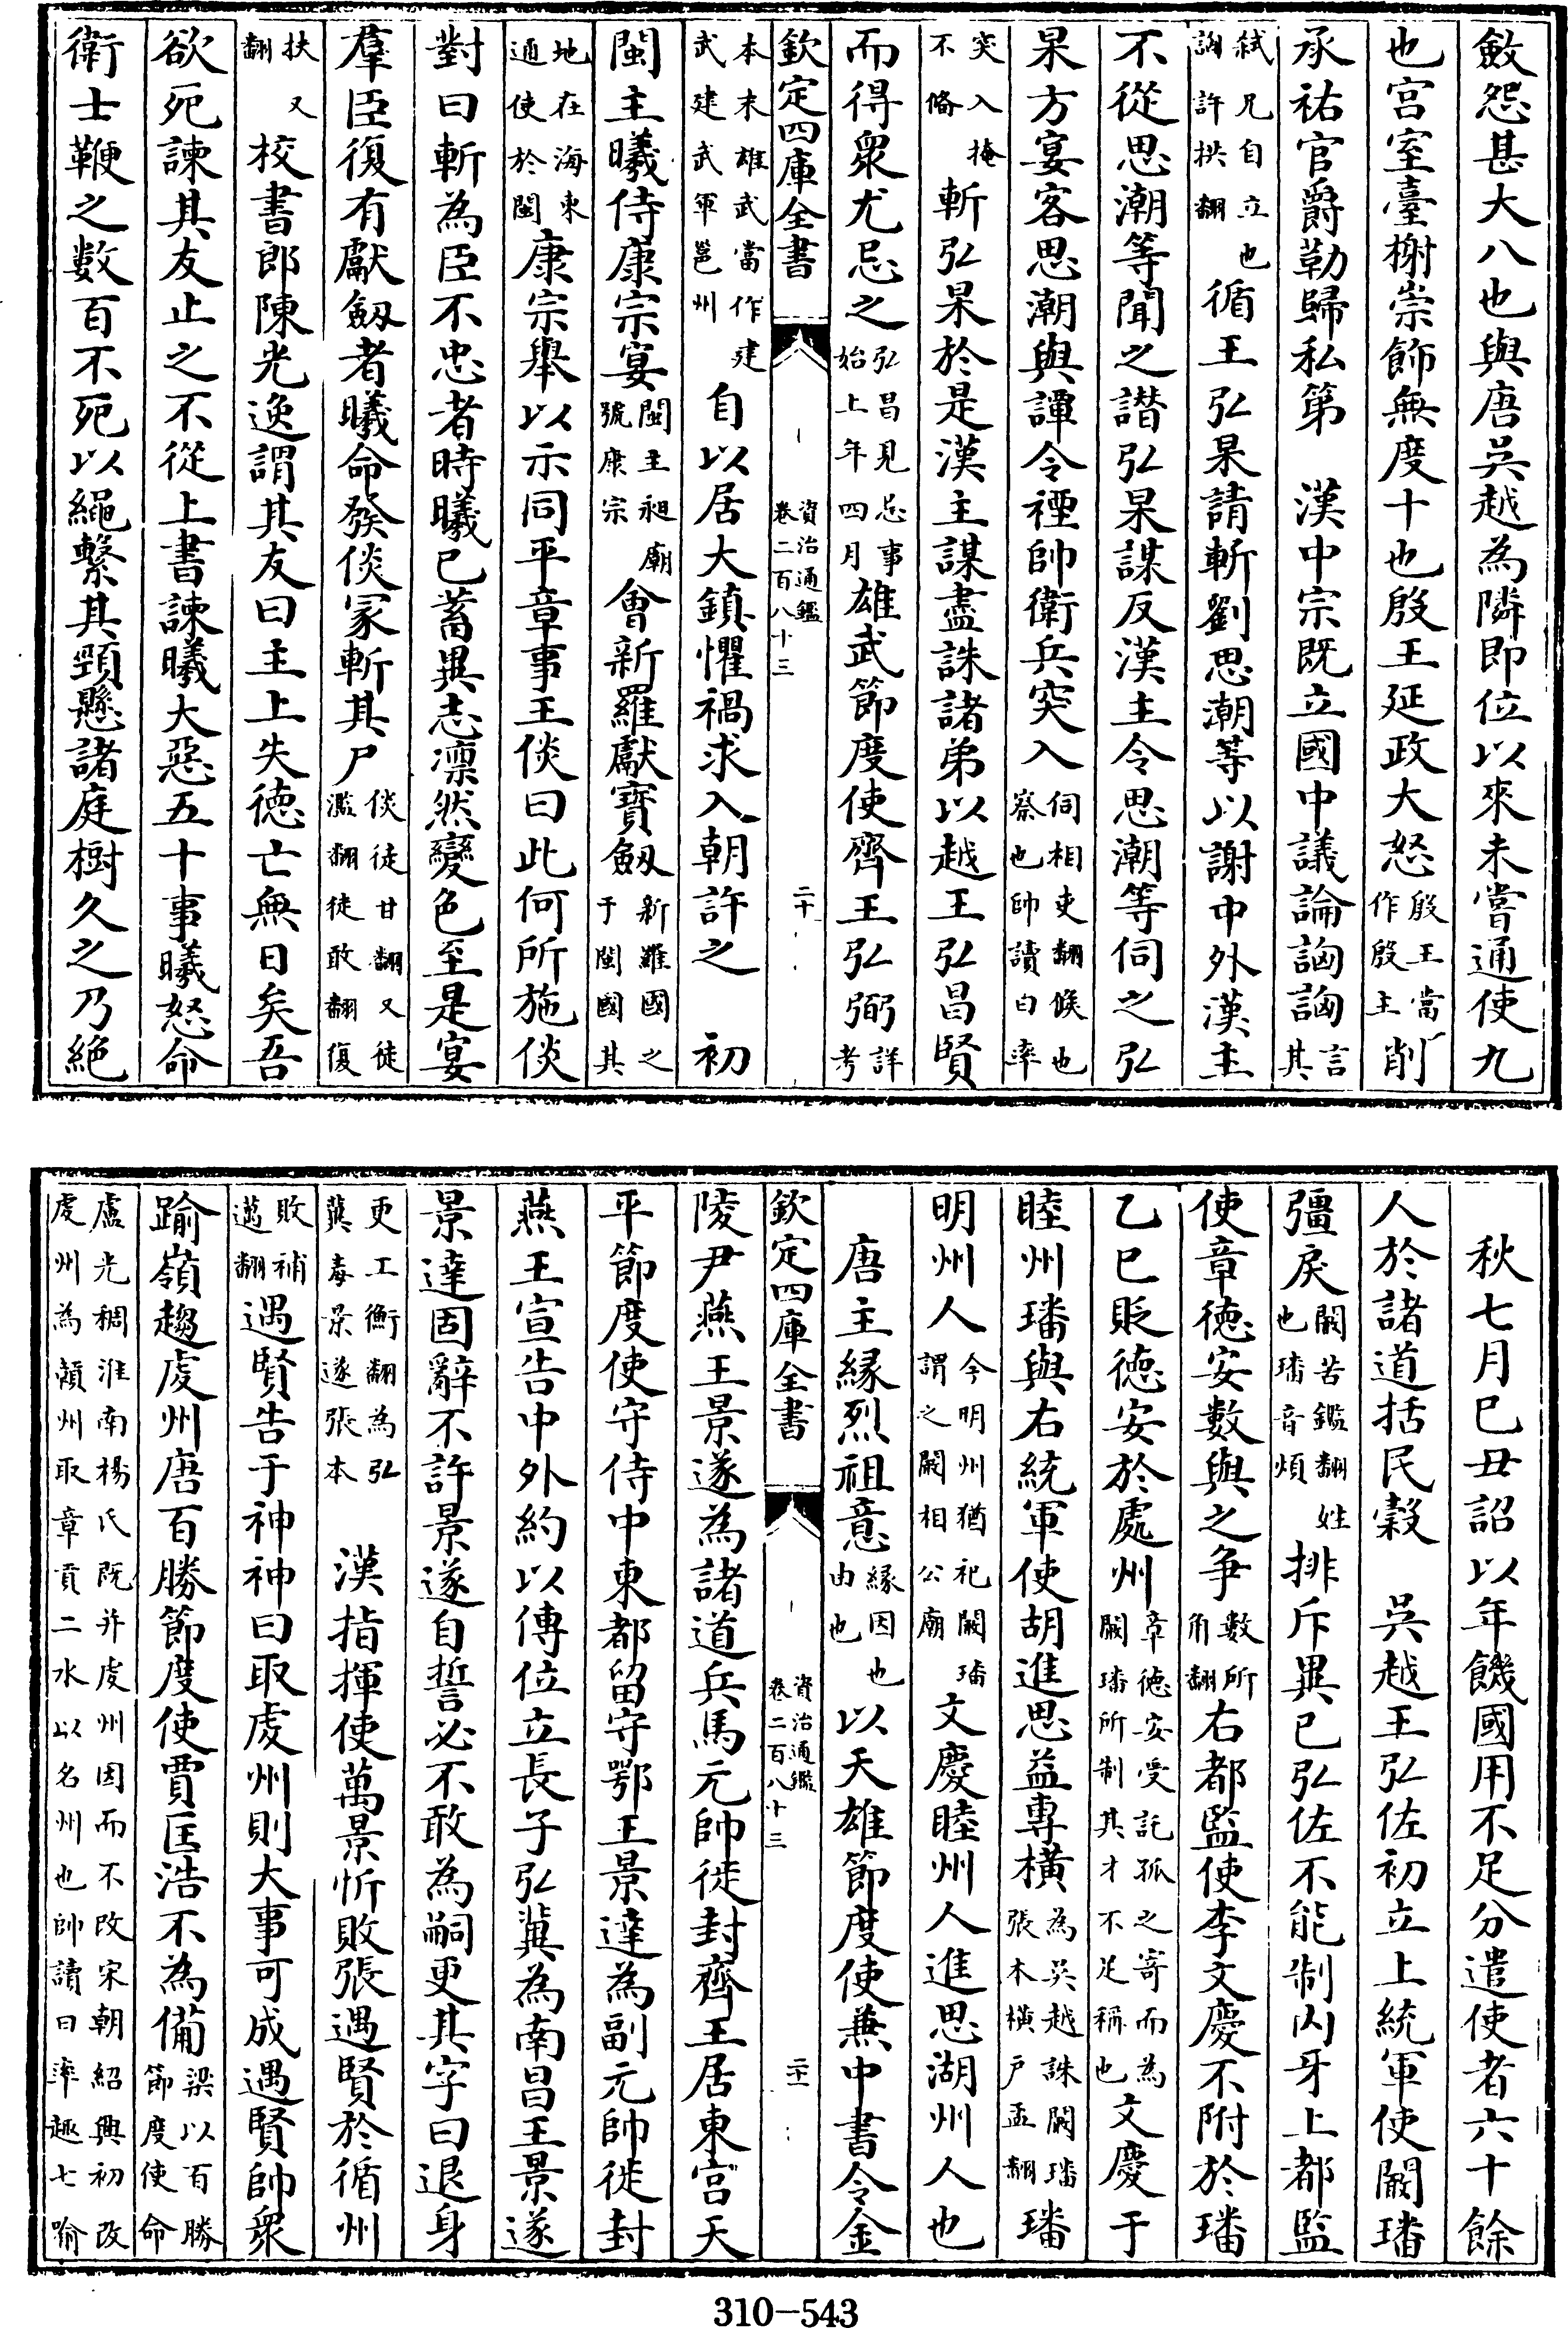 斂怨甚大八也與唐吳越為隣即位以來未嘗通使九
也宫室臺榭崇飾無度十也殷王延政大怒殷王當作殷主削
承祐官爵勒歸私第　漢中宗既立國中議論訩訩言其
弑兄自立也訩許拱翻循王弘杲請斬劉思潮等以謝中外漢主
不從思潮等聞之譛弘杲謀反漢主令思潮等伺之弘
杲方宴客思潮與譚令禋帥衛兵突入伺相吏翻候也察也帥讀曰率
突入掩不備斬弘杲於是漢主謀盡誅諸弟以越王弘昌賢
而得衆尤忌之弘昌見忌事始上年四月雄武節度使齊王弘弼詳考
欽定四庫全書　資治通鑑卷二百八十三　二十
本末雄武當作建武建武軍邕州自以居大鎮懼禍求入朝許之　初
閩主曦侍康宗宴閩主昶廟號康宗會新羅獻寶劔新羅國之于閩國其
地在海東通使於閩康宗舉以示同平章事王倓曰此何所施倓
對曰斬為臣不忠者時曦已蓄異志凛然變色至是宴
羣臣復有獻劔者曦命發倓冢斬其尸倓徒甘翻又徒濫翻徒敢翻復
扶又翻校書郎陳光逸謂其友曰主上失徳亡無日矣吾
欲死諫其友止之不從上書諫曦大惡五十事曦怒命
衛士鞭之數百不死以繩繫其頸懸諸庭樹久之乃絶
秋七月已丑詔以年饑國用不足分遣使者六十餘
人於諸道括民穀　吳越王弘佐初立上統軍使闞璠
彊戾闞苦鑑翻姓也璠音煩排斥異已弘佐不能制内牙上都監
使章徳安數與之争數所角翻右都監使李文慶不附於璠
乙已貶徳安於處州章徳安受託孤之寄而為闞璠所制其才不足稱也文慶于
睦州璠與右統軍使胡進思益專横為吳越誅闞璠張本横戸孟翻璠
明州人今明州猶祀闞璠謂之闞相公廟文慶睦州人進思湖州人也
唐主緣烈祖意緣因也由也以天雄節度使兼中書令金
欽定四庫全書　資治通鑑卷二百八十三　二十一
陵尹燕王景遂為諸道兵馬元帥徙封齊王居東宫天
平節度使守侍中東都留守鄂王景達為副元帥徙封
燕王宣告中外約以傳位立長子弘冀為南昌王景遂
景達固辭不許景遂自誓必不敢為嗣更其字曰退身
更工衡翻為弘冀毒景遂張本　漢指揮使萬景忻敗張遇賢於循州
敗補邁翻遇賢告于神神曰取虔州則大事可成遇賢帥衆
踰嶺趨虔州唐百勝節度使賈匡浩不為備梁以百勝節度使命
盧光稠淮南楊氏既并虔州因而不改宋朝紹興初改虔州為贛州取章貢二水以名州也帥讀曰率趣七喻
310-543